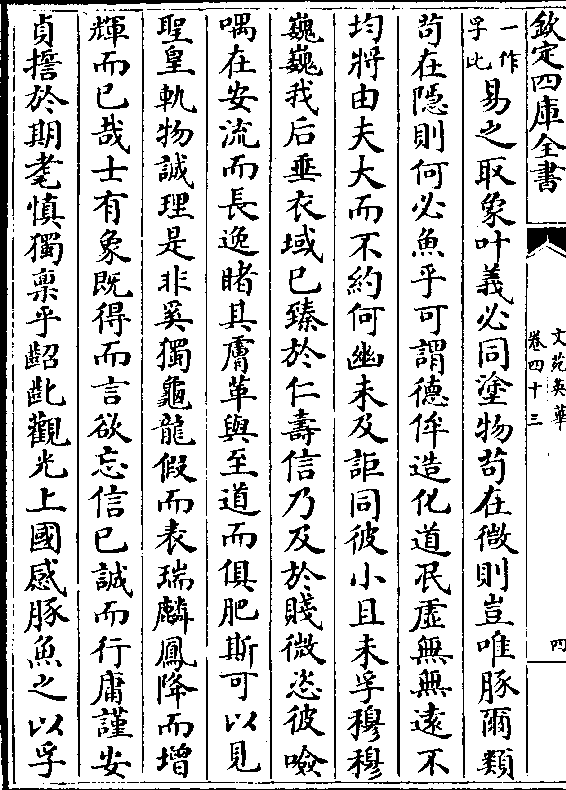 欽定四庫全書
文苑英華
卷四十三
四
一作孚此易之取象叶義必同塗物苟在微則豈唯豚爾類
苟在隱則何必魚乎可謂德侔造化道冺虚無無遠不
均將由夫大而不約何幽未及詎同彼小且未孚穆穆
巍巍我后垂衣域已臻於仁壽信乃及於賤微恣彼噞
喁在安流而長逸睹其膚革與至道而俱肥斯可以見
聖皇軌物誠理是非奚獨龜龍假而表瑞麟鳳降而增
輝而已哉士有象既得而言欲忘信已誠而行庸謹安
貞擔於期耄慎獨稟乎齠齔觀光上國感豚魚之以孚